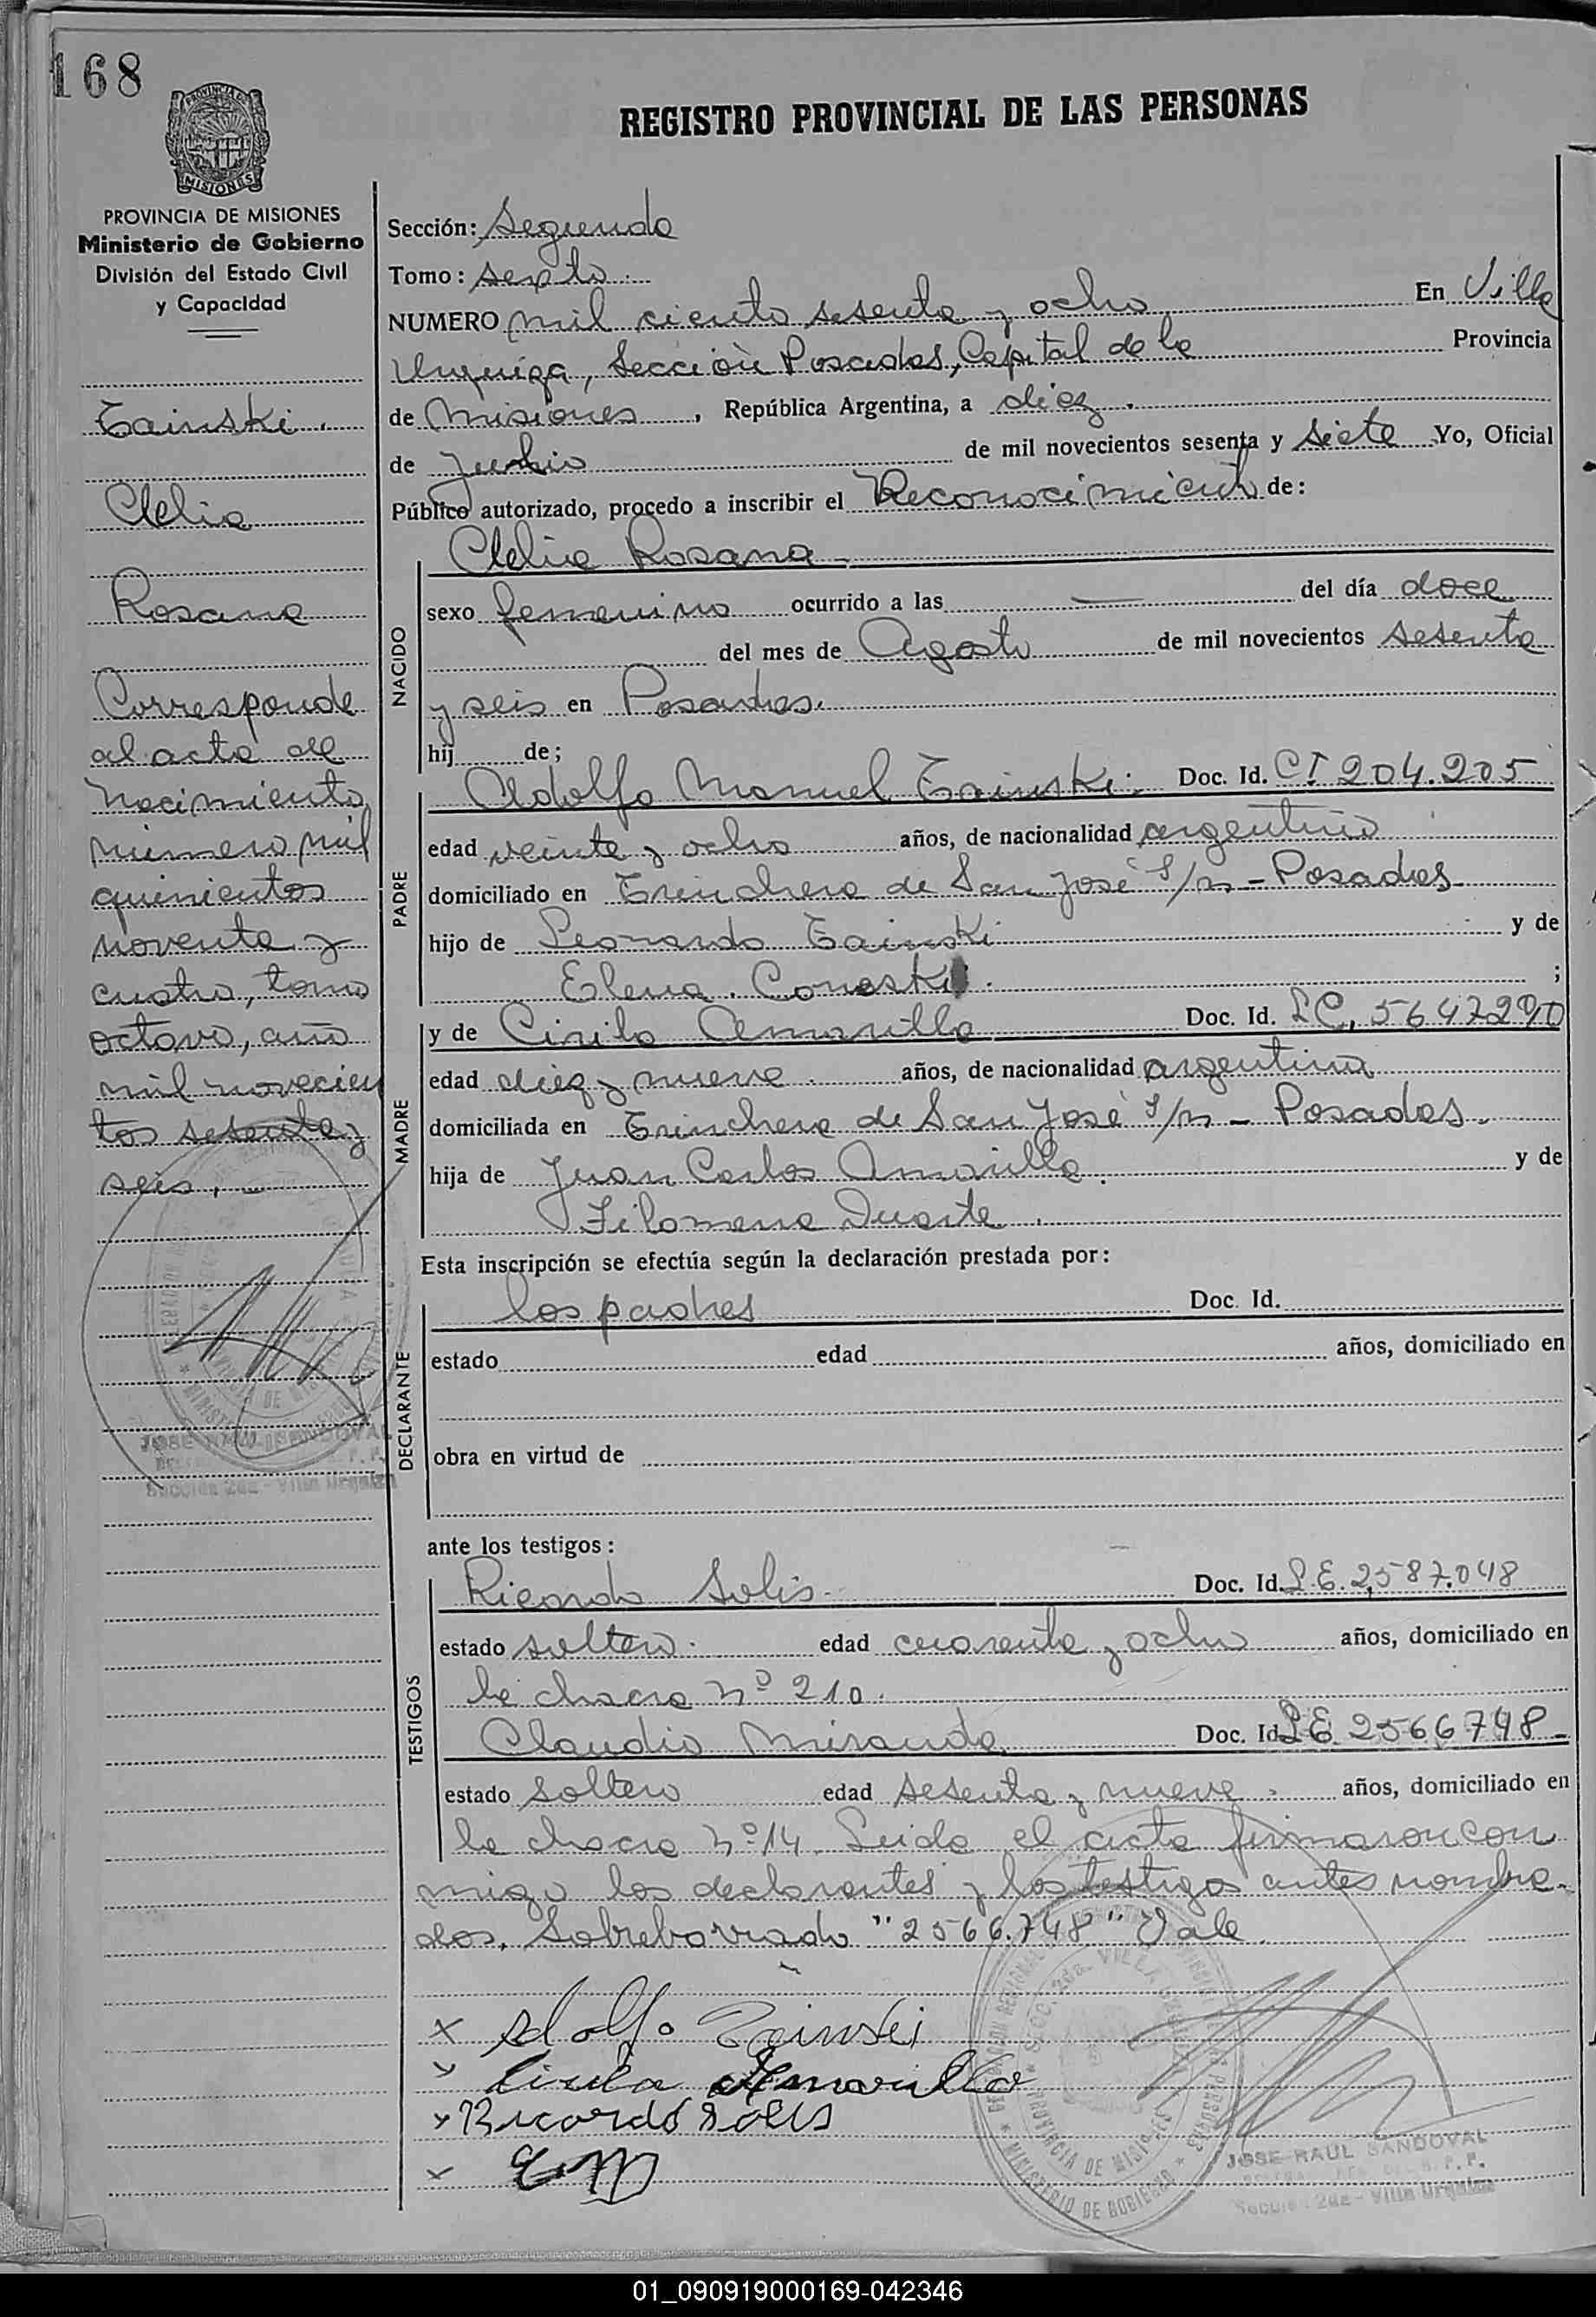 168
PROVINCIA DE MISIONES
MISIONES
PROVINCIA DE MISIONES
Ministerio de Gobierno
División del Estado Civil
y Capacidad
Tainski.
Clelia
Rosana
Corresponde
al acta de
Nacimiento
número mil
quinientos
noventa y
cuatro, tomo
octavo, año
mil novecien
tos sesenta y
seis.
JOSE RAUL SANDOVAL
Sección 2da - Villa Urquiza
REGISTRO PROVINCIAL DE LAS PERSONAS
Sección: Segunda
Tomo: sexto.
NUMERO mil ciento sesenta y ocho En Villa
Urquiza, Sección Posadas, Capital de la Provincia
de Misiones, República Argentina, a diez
de Junio de mil novecientos sesenta y siete Yo, Oficial
Público autorizado, procedo a inscribir el Reconocimiento de:
Clelia Rosana
NACIDO
sexo femenino ocurrido a las — del día doce
del mes de Agosto de mil novecientos sesenta
y seis en Posadas.
hij de;
PADRE
Adolfo Manuel Tainski. Doc. Id. CI 204.205
edad veinte y ocho años, de nacionalidad argentino
domiciliado en Trinchera de San José S/n - Posadas
hijo de Leonardo Tainski y de
Elena Coneski. ;
MADRE
y de Cirila Amarilla Doc. Id. LC. 5647290
edad diez y nueve años, de nacionalidad argentina
domiciliada en Trinchera de San José S/n - Posadas.
hija de Juan Carlos Amarilla. y de
Filomena Duarte.
Esta inscripción se efectúa según la declaración prestada por:
DECLARANTE
los padres Doc. Id.
estado edad años, domiciliado en
obra en virtud de
ante los testigos:
TESTIGOS
Ricardo Solis Doc. Id. L.E. 2,587.048
estado soltero. edad cuarenta y ocho años, domiciliado en
la chacra Nº 210.
Claudio Miranda Doc. Id. LE 2566748-
estado soltero edad sesenta y nueve. años, domiciliado en
la chacra Nº 14. Leida el acta firmaron con
migo los declarantes y los testigos antes nombra-
dos. Sobreborrado "2566.748" Vale
x Adolfo Tainski
x Cirila Amarilla
x Ricardo Solis
x
SECC. 2da. VILLA URQUIZA
PROVINCIA DE MISIONES
MINISTERIO DE GOBIERNO
JOSE RAUL SANDOVAL
Sección 2da - Villa Urquiza
01_090919000169-042346